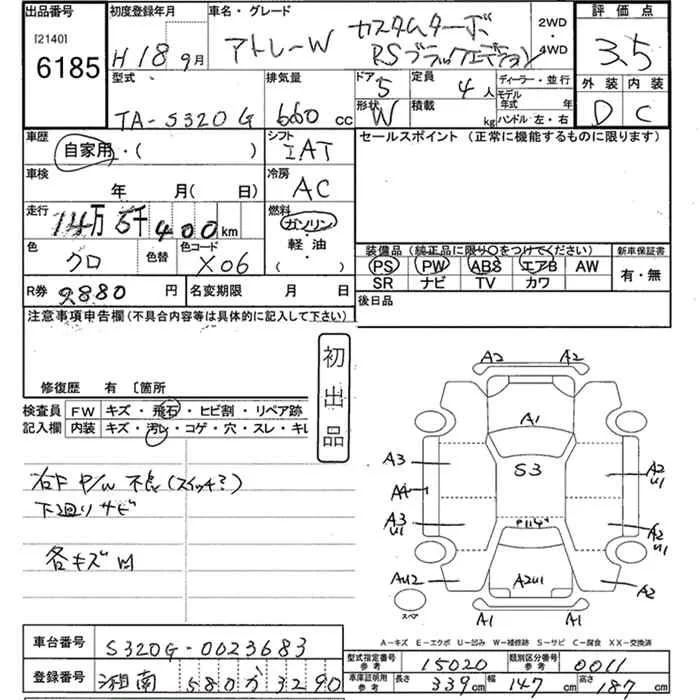 出品番号 初度登録年月 車名・グレード 評価点
[2140] 6185 H18 9月 アトレーW カスタムターボ RSブラックエディション 2WD・4WD 3.5
型式 排気量 ドア 定員 ディーラー・並行 外装 内装
TA-S320G 660cc 5 4人 モデル年式 年
形状 W 積載 kg ハンドル 左・右 D C
車歴 シフト セールスポイント (正常に機能するものに限ります)
自家用・( ) IAT
車検 冷房
年 月(日) AC
走行 燃料
14万5千400km ガソリン・軽油・( )
色 色替 色コード
クロ X06
装備品(純正品に限り○をつけてください) 新車保証書
PS PW ABS エアB AW 有・無
SR ナビ TV カワ
R券 9880円 名変期限 月 日 後日品
注意事項申告欄(不具合内容等は具体的に記入して下さい)
修復歴 有 〔箇所
初出品
検査員記入欄 FW キズ・飛石・ヒビ割・リペア跡
内装 キズ・汚レ・コゲ・穴・スレ・キレ
右下 P/W 不良(スイッチ?)
下廻リ サビ
各キズ凹
A2 A2
A1
A3 S3 A2 U1
A4
A3 U1 A2 U1
AU2 A2U1 A2
スペア A1 A1
A-キズ E-エクボ U-凹み W-補修跡 S-サビ C-腐食 XX-交換済
車台番号 S320G-0023683
型式指定番号 参考 15020 類別区分番号 参考 0011
登録番号 湘南 580 か 3290
車庫証明用 参考 長さ 339cm 幅 147cm 高さ 187cm